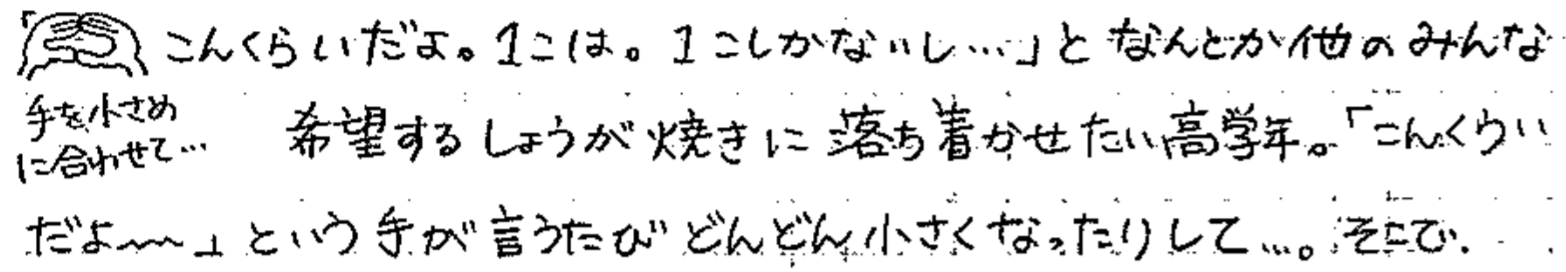 「こんくらいだよ。1こは。1こしかないし…」となんとか他のみんな
手を小さめ
に合わせて…
希望するしょうが焼きに落ち着かせたい高学年。「こんくらい
だよ〜〜」という手が言うたびどんどん小さくなったりして…。そこで、